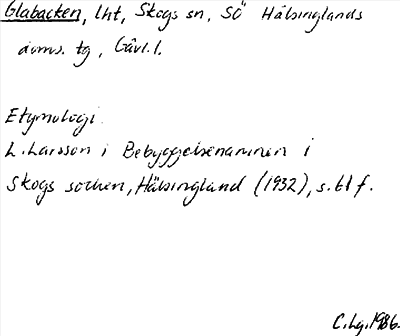 Glabacken, lht, Skogs sn, SÖ Hälsinglands
doms. tg, Gävl. l.
Etymologi
L. Larsson i Bebyggelsenamnen i
Skogs socken, Hälsingland (1932), s. 61 f.
C. Lg. 1986.